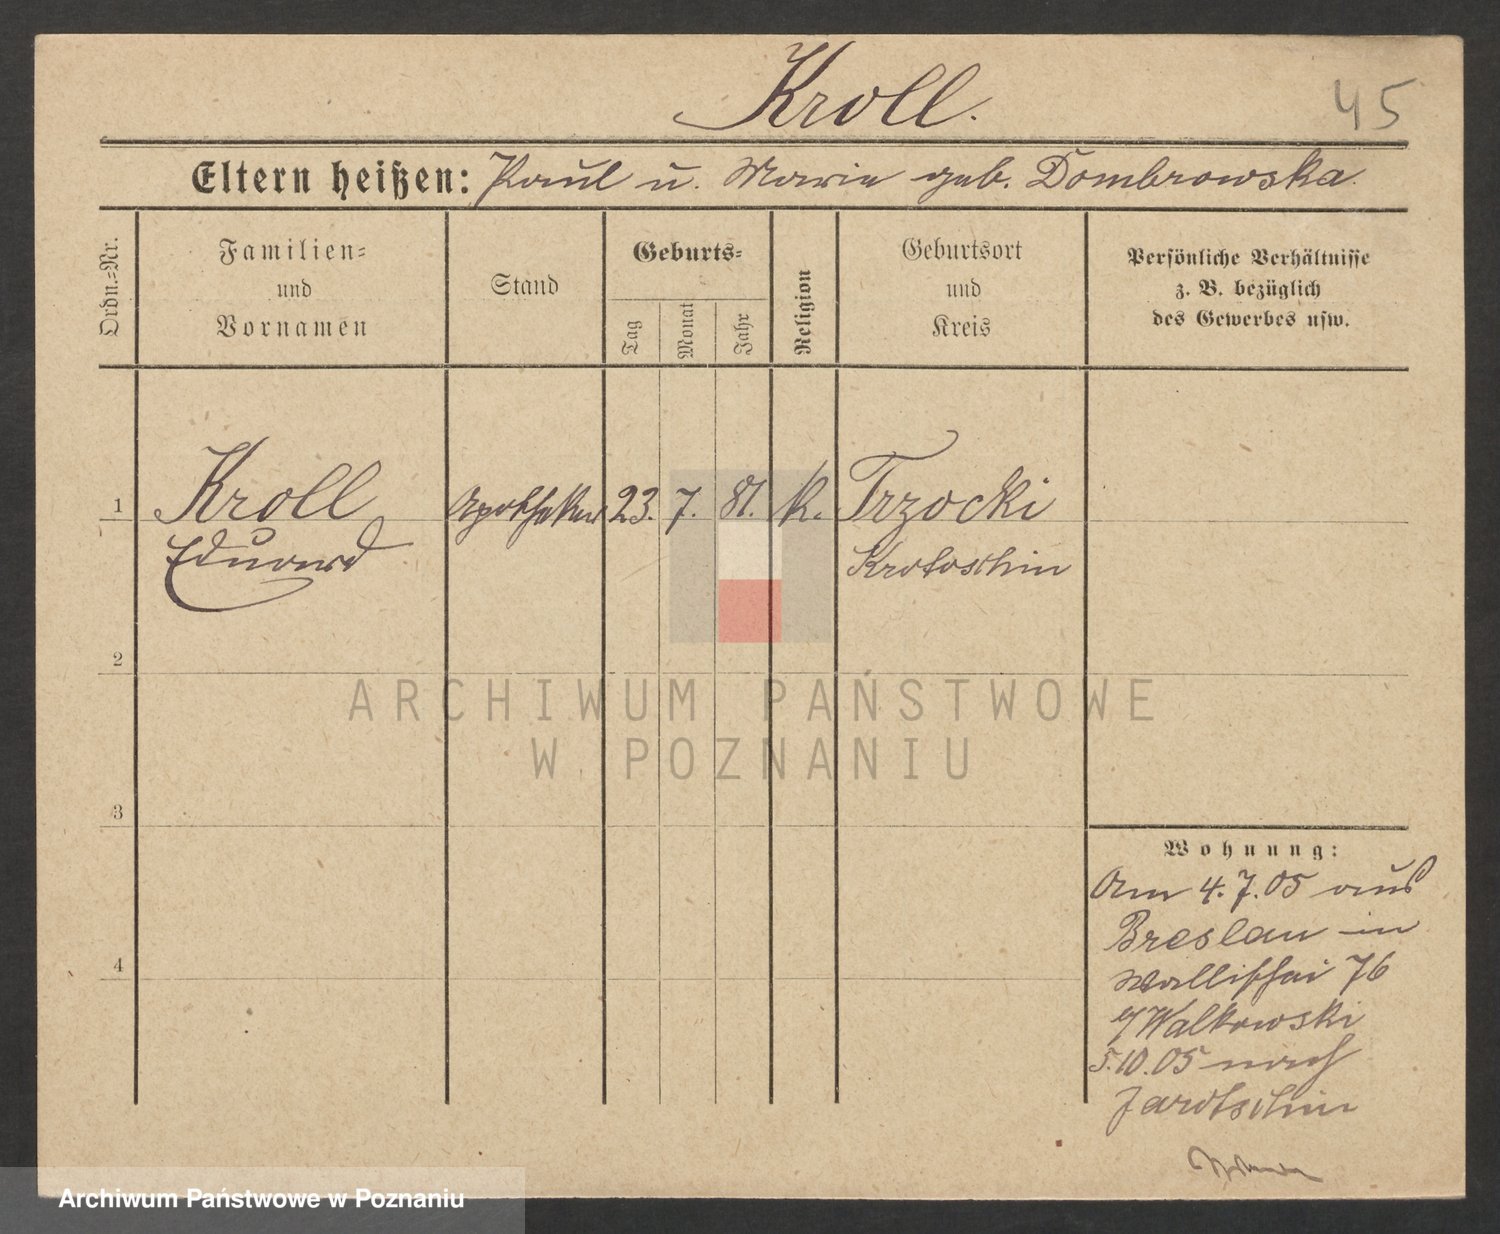 Kroll.
45
Eltern heißen: Paul u. Marie geb. Dombrowska.
Ordn.=Nr.
Familien=
und
Vornamen
Stand
Geburts=
Tag
Monat
Jahr
Religion
Geburtsort
und
Kreis
Persönliche Verhältnisse
z. B. bezüglich
des Gewerbes usw.
1 Kroll Apotheker 23. 7. 81. k. Trzocki
Eduard Krotoschin
2
ARCHIWUM PAŃSTWOWE
W POZNANIU
3
Wohnung:
Am 4.7.05 aus
Breslau in
Wallischei 76
b/Walkowski
4
5.10.05 nach
Jarotschin
Archiwum Państwowe w Poznaniu